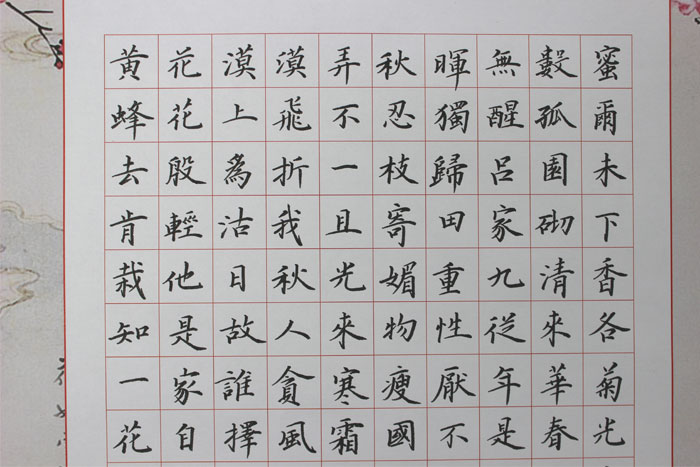 黄花漠漠弄秋暉無數蜜
蜂花上飛不忍獨醒孤爾
去殷為折一枝歸呂園未
肯輕沽我且寄田家砌下
栽他日秋光媚重九清香
知是故人來物性從來各
一家誰貪寒瘦厭年華菊
花自擇風霜國不是春光